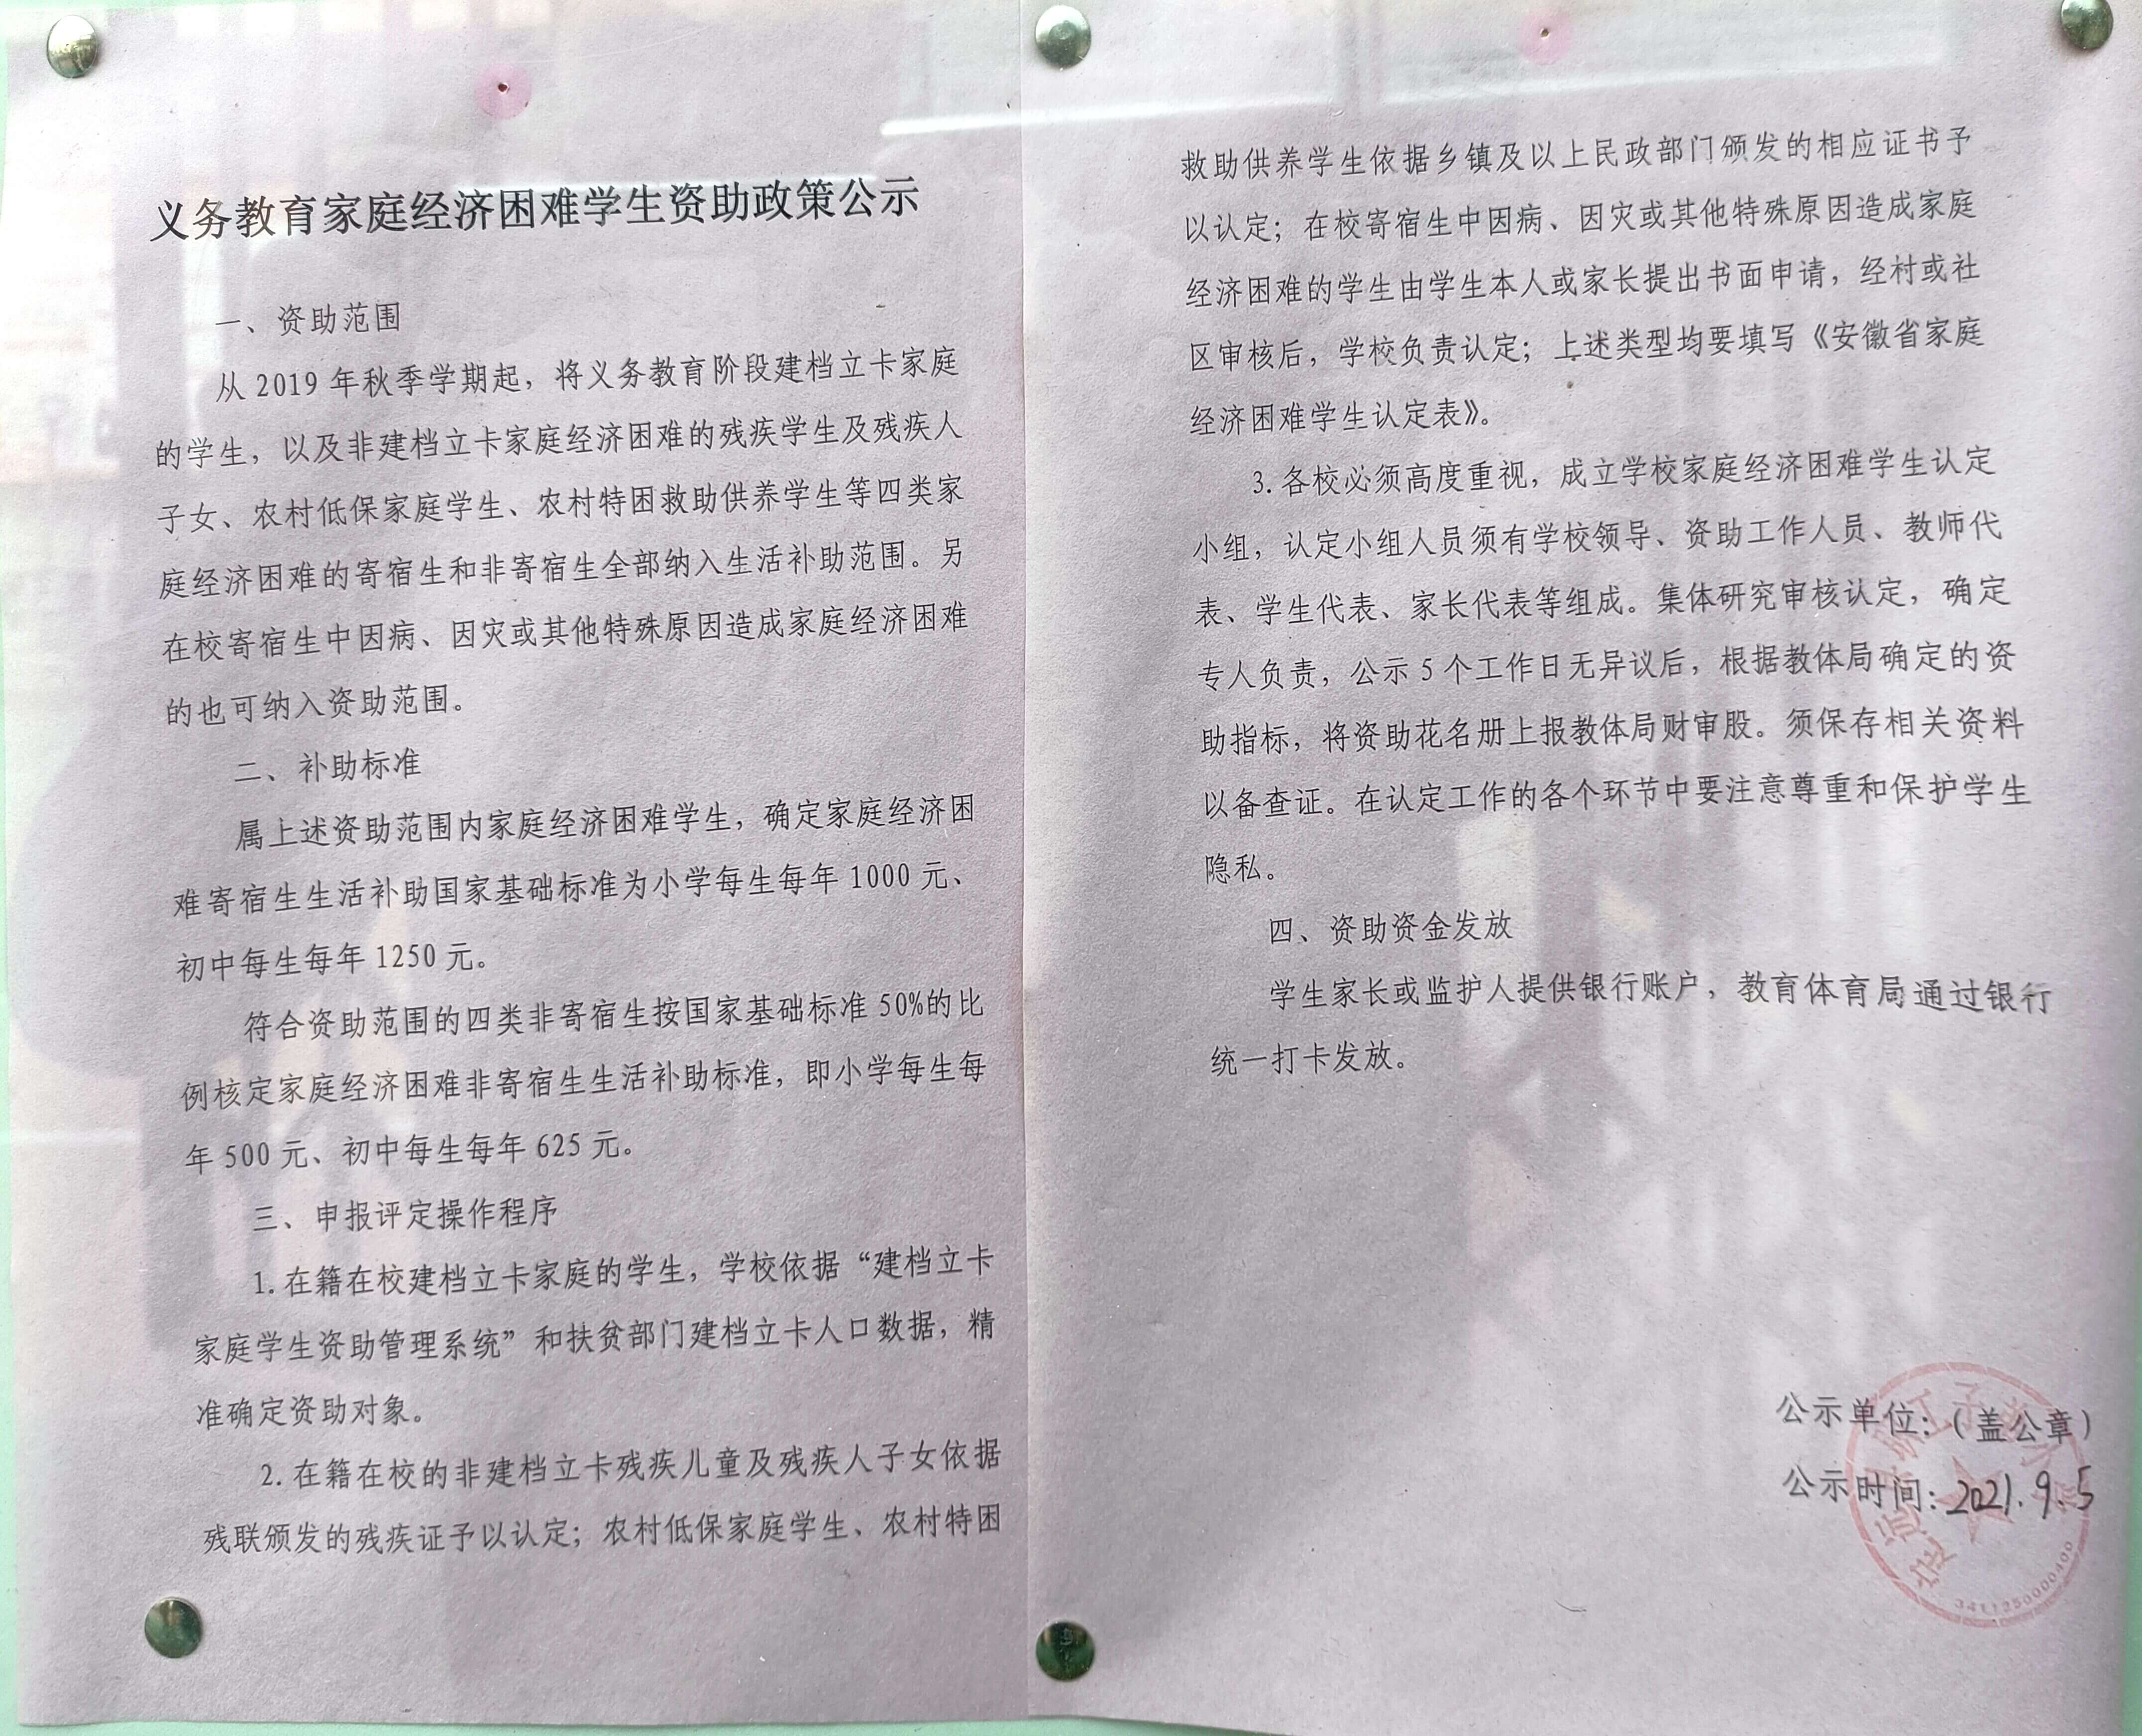 义务教育家庭经济困难学生资助政策公示
一、资助范围
从 2019 年秋季学期起，将义务教育阶段建档立卡家庭
的学生，以及非建档立卡家庭经济困难的残疾学生及残疾人
子女、农村低保家庭学生、农村特困救助供养学生等四类家
庭经济困难的寄宿生和非寄宿生全部纳入生活补助范围。另
在校寄宿生中因病、因灾或其他特殊原因造成家庭经济困难
的也可纳入资助范围。
二、补助标准
属上述资助范围内家庭经济困难学生，确定家庭经济困
难寄宿生生活补助国家基础标准为小学每生每年 1000 元、
初中每生每年 1250 元。
符合资助范围的四类非寄宿生按国家基础标准 50%的比
例核定家庭经济困难非寄宿生生活补助标准，即小学每生每
年 500 元、初中每生每年 625 元。
三、申报评定操作程序
1.在籍在校建档立卡家庭的学生，学校依据“建档立卡
家庭学生资助管理系统”和扶贫部门建档立卡人口数据，精
准确定资助对象。
2.在籍在校的非建档立卡残疾儿童及残疾人子女依据
残联颁发的残疾证予以认定；农村低保家庭学生、农村特困
救助供养学生依据乡镇及以上民政部门颁发的相应证书予
以认定；在校寄宿生中因病、因灾或其他特殊原因造成家庭
经济困难的学生由学生本人或家长提出书面申请，经村或社
区审核后，学校负责认定；上述类型均要填写《安徽省家庭
经济困难学生认定表》。
3.各校必须高度重视，成立学校家庭经济困难学生认定
小组，认定小组人员须有学校领导、资助工作人员、教师代
表、学生代表、家长代表等组成。集体研究审核认定，确定
专人负责，公示 5 个工作日无异议后，根据教体局确定的资
助指标，将资助花名册上报教体局财审股。须保存相关资料
以备查证。在认定工作的各个环节中要注意尊重和保护学生
隐私。
四、资助资金发放
学生家长或监护人提供银行账户，教育体育局通过银行
统一打卡发放。
公示单位：（盖公章）
公示时间：2021.9.5